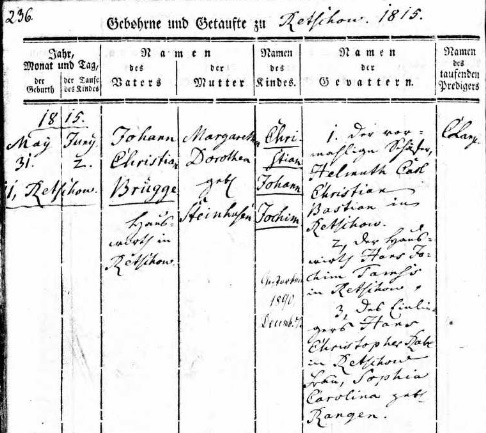 236.
Gebohrne und Getaufte zu Retschow. 1815.
Jahr, Monat und Tag,
der Geburth
der Taufe des Kindes
Namen des Vaters
Namen der Mutter
Namen des Kindes.
Namen der Gevattern.
Namen des taufenden Predigers
18 15.
May Juny
31. 2.
1, Retschow.
Johann
Christian
Brügge
Haus-
wirth in
Retschow.
Margaretha
Dorothea
geb.
Steinhusen
Chri-
stian
Johann
Jochim
Gestorben
1890
Decemb.
1. Der vor-
mahlige Schäfer,
Helmuth Carl
Christian
Bastian in
Retschow.
2, der Haus-
wirth Hans Jo-
chim
in Retschow,
3, des Einlie-
gers Hans
Christopher
in Retschow
Frau, Sophia
Carolina geb.
Rangen.
CLange